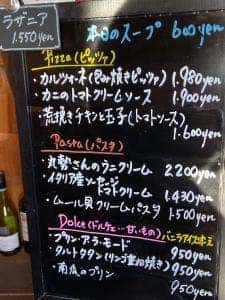 ラザニア
1.550yen
本日のスープ 600yen
Pizza(ピッツァ)
・カルツォーネ(包み焼きピッツァ) 1.980yen
・カニのトマトクリームソース 1.900yen
・荒挽きチキンと玉子(トマトソース)
1.600yen
Pasta(パスタ)
・丸勢さんのウニクリーム 2,200yen
・イタリア産
トマトクリーム 1.430yen
・ムール貝クリームパスタ 1500yen
Dolce(ドルチェ…甘いもの) バニラアイス
・プリン・ア・ラ・モード 950yen
・タルトタタン(リンゴ 焼き) 950yen
・南瓜のプリン 950yen